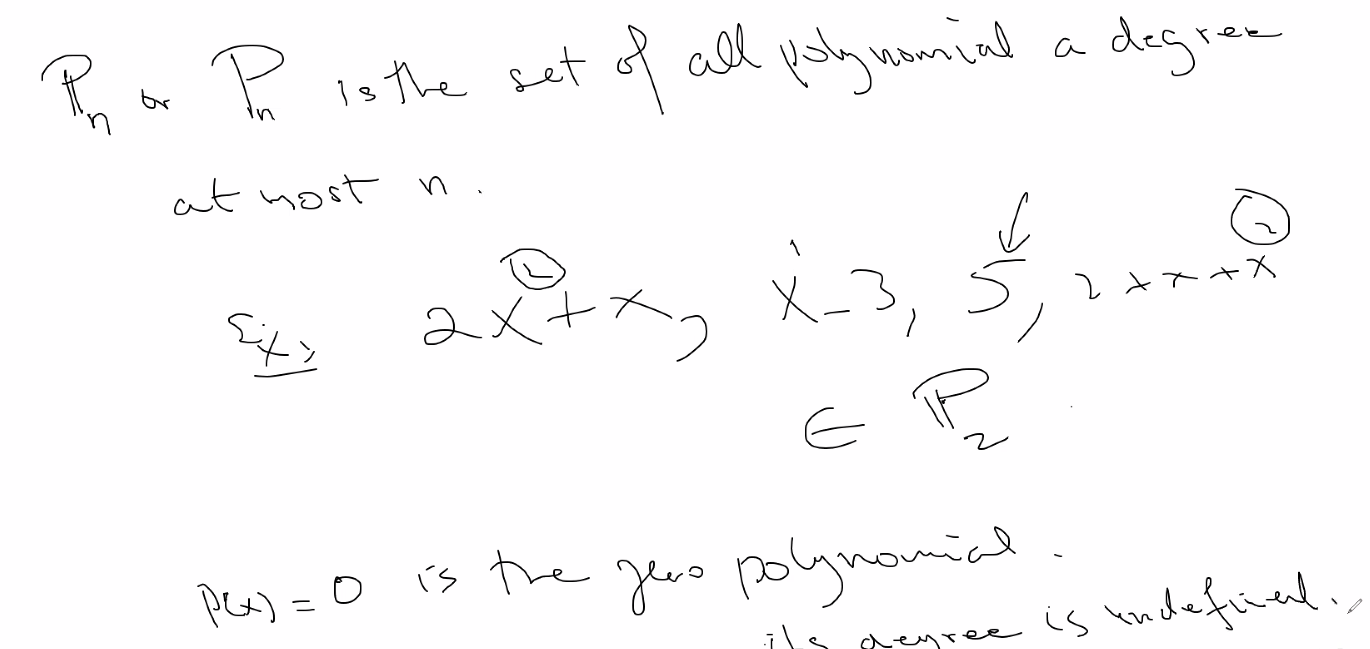 ℙₙ or Pₙ is the set of all polynomial a degree
at most n.
Ex; 2x²+x, x¹-3, 5, 2+x+x²
∈ ℙ₂
p(x)=0 is the zero polynomial.
its degree is undefined.